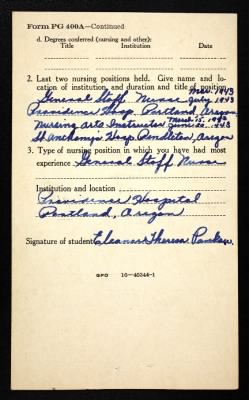 Form PG 400A—Continued
d. Degrees conferred (nursing and other):
Title Institution Date
2. Last two nursing positions held. Give name and lo-
cation of institution, and duration and title of position
Mar. 1943
General Staff Nurse July 1943
Providence Hosp. Portland, Oregon
Nursing Arts Instructor June 20, 1943
St Anthony's Hosp. Pendleton, Oregon
3. Type of nursing position in which you have had most
experience General Staff Nurse
Institution and location
Providence Hospital
Portland, Oregon
Signature of student Eleanor Theresa
GPO 16—40244-1